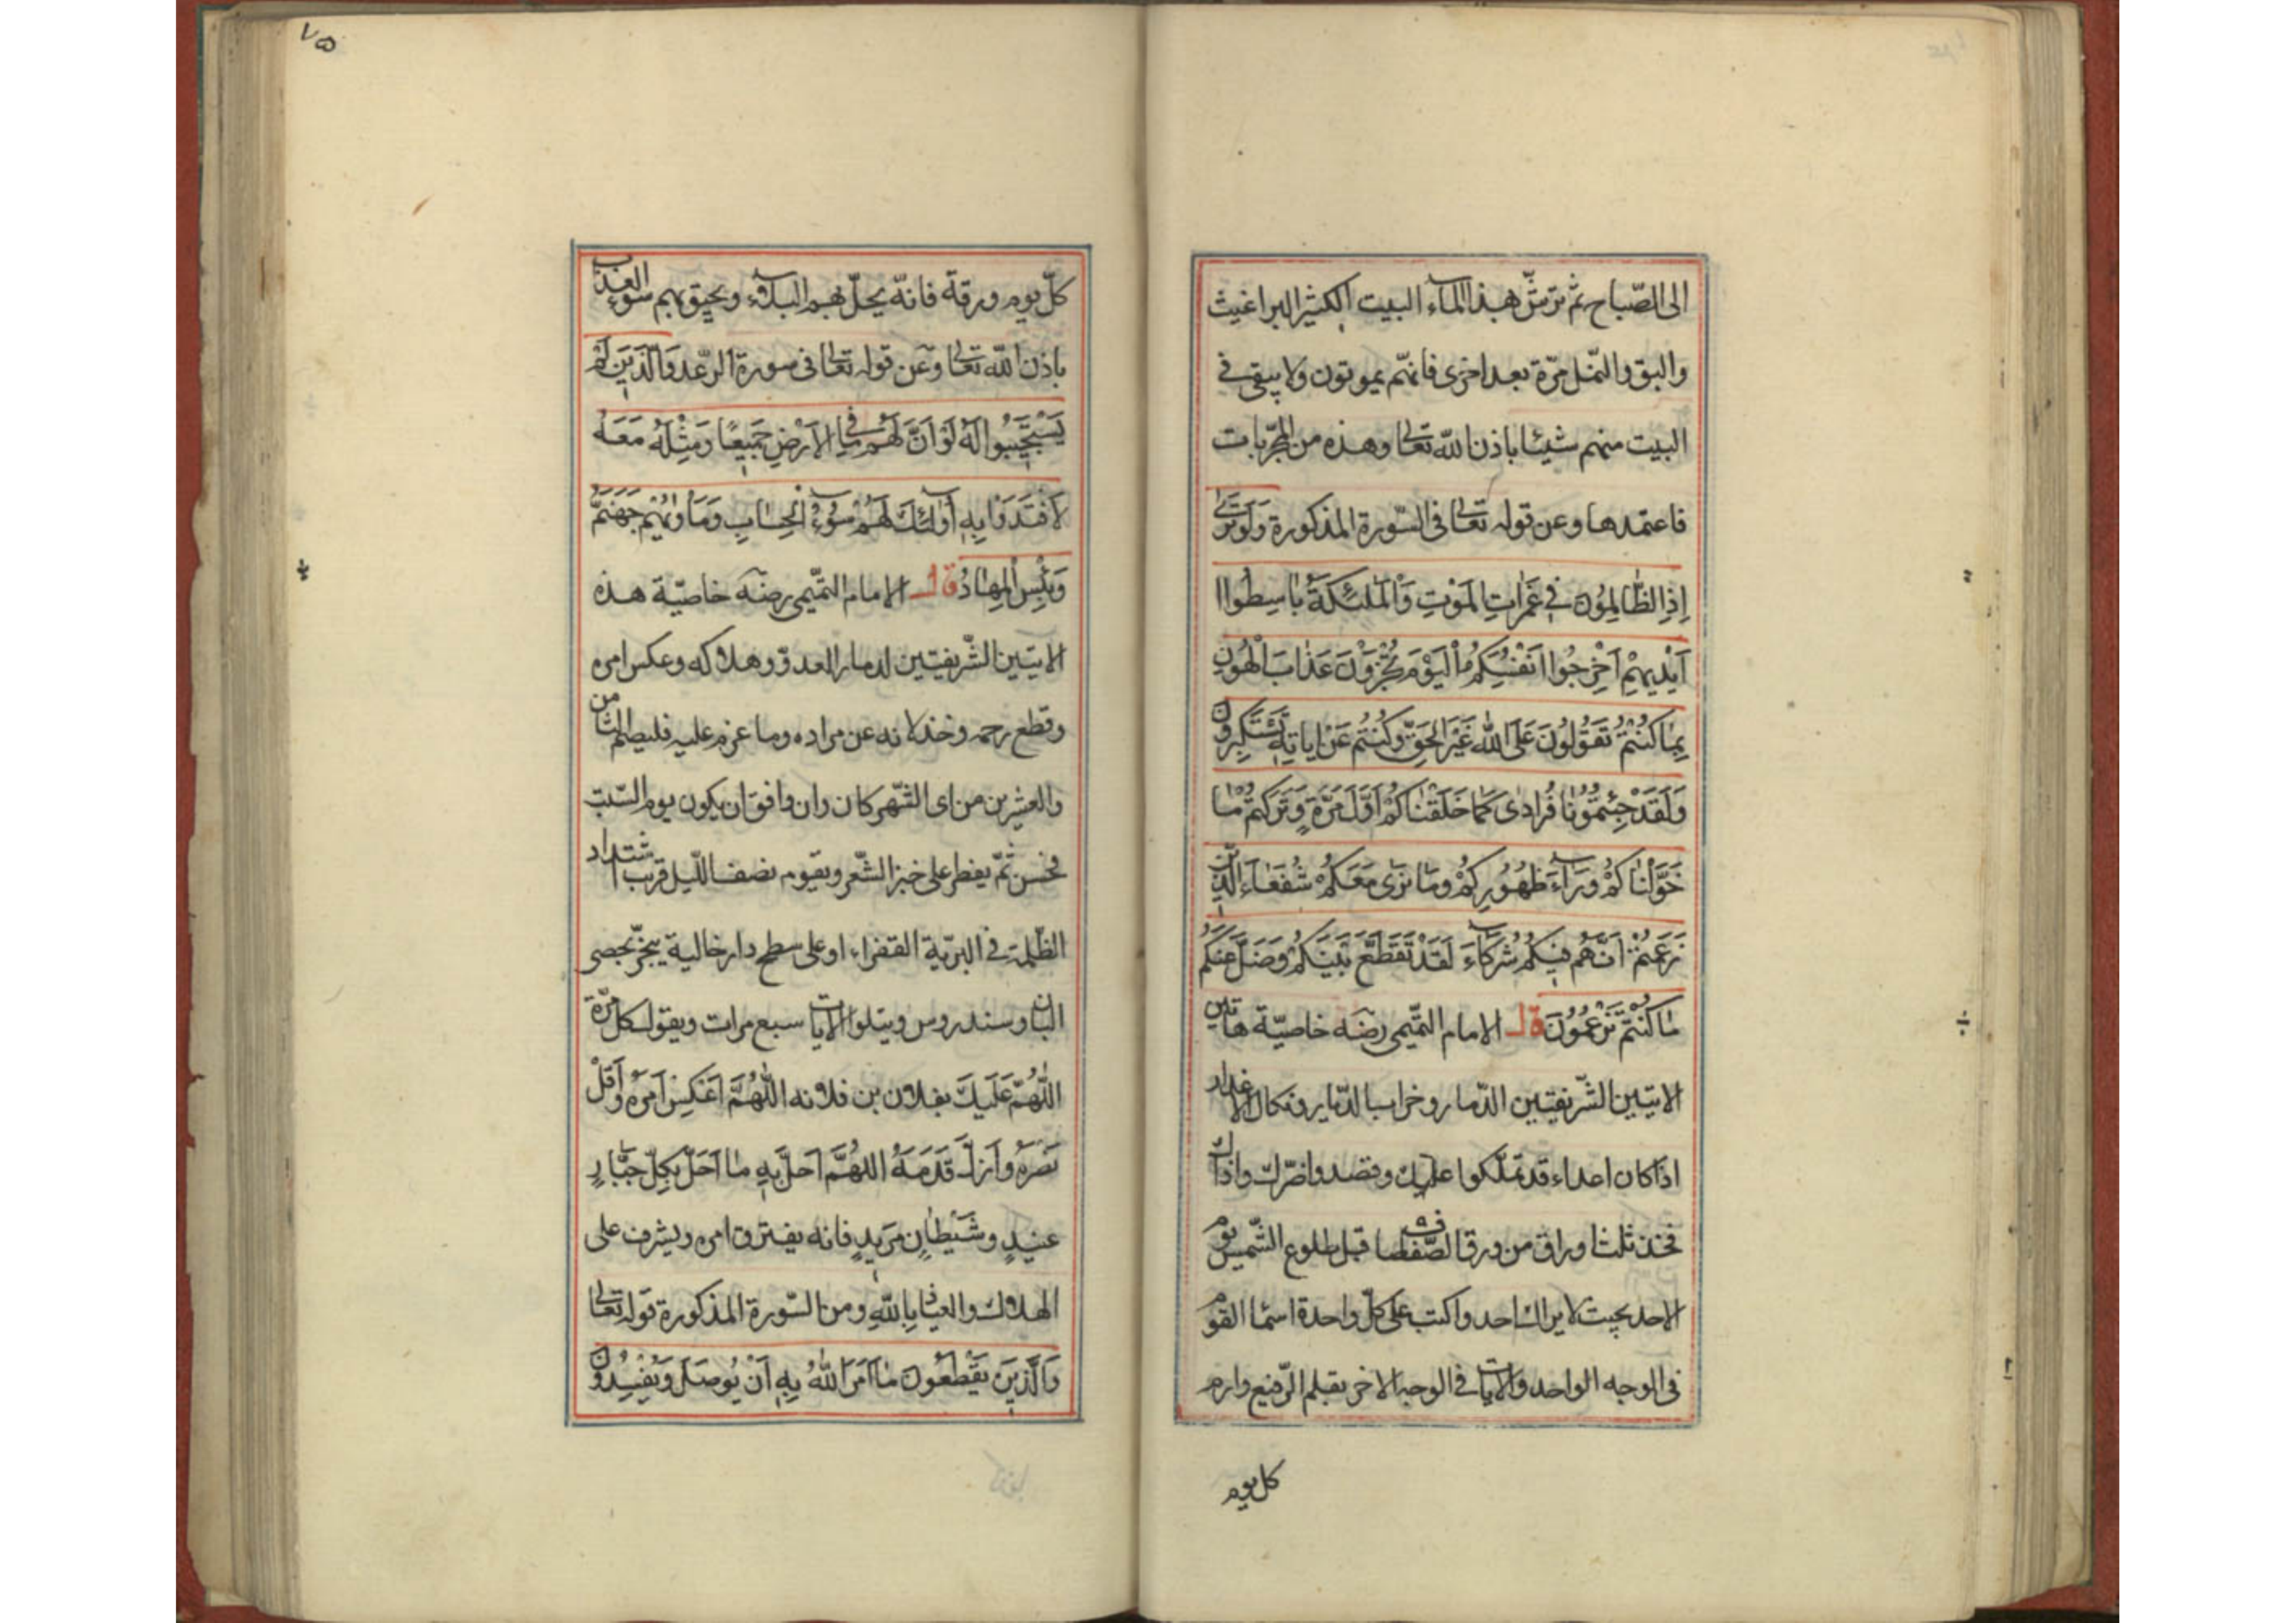 الى الصّباح ثم ترشّ هذا الماء البيت الكثير البراغيث
والبق والنّمل مرّة بعد اخرى فانهّم يموتون ولا يبقى فى
البيت منهم شيئا باذن اللّه تعالى وهذه من المجرّبات
فاعتمدها وعن قوله تعالى فى السّورة المذكورة وَلَوْ تَرىٰ
اِذِ الظّالِمُونَ فى غَمَراتِ المَوْتِ وَالْمَلٰئِكَةُ باسِطُوا
اَيْديهِمْ اَخْرِجُوا اَنْفُسَكُمُ اَلْيَوْمَ تُجْزَوْنَ عَذابَ الْهُونِ
بِمٰا كُنْتُمْ تَقُولُونَ عَلَى اللّٰهِ غَيْرَ الحَقِّ وَكُنْتُمْ عَنْ اياتِهِ تَسْتَكْبِرُونَ
وَلَقَدْ جِئْتُمُونٰا فُرادٰى كَمٰا خَلَقْناكُمْ اَوَّلَ مَرَّةٍ وَتَرَكْتُمْ مٰا
خَوَّلْنٰاكُمْ وَرٰاءَ ظُهُورِكُمْ وَمٰا نَرٰى مَعَكُمْ شُفَعٰاءَ الَّذينَ
زَعَمْتُمْ اَنَّهُمْ فيكُمْ شُرَكٰاءَ لَقَدْ تَقَطَّعَ بَيْنَكُمْ وَضَلَّ عَنْكُمْ
مٰا كُنْتُمْ تَزْعُمُونَ قال الامام التّميمى رضه خاصيّة هاتين
الايتين الشّريفتين الدّمار وخراب الدّيار ونكال الاعداء
اذا كان اعداء قد تملّكوا عليك وقصدوا ضرّك واذاك
فخذ ثلث اوراق من ورق الصّفصاف قبل طلوع الشّمس يوم
الاحد بحيث لا يراك احد واكتب على كلّ واحدة اسما القوم
فى الوجه الواحد والايات فى الوجه الاخر بقلم الرّفيع وارم
كل يوم
٧٥
كلّ يوم ورقة فانّه يحلّ بهم البلاء ويحيق بهم سوء العذاب
باذن اللّه تعالى وعن قوله تعالى فى سورة الرّعد وَالَّذينَ لَمْ
يَسْتَجيبُوا لَهُ لَوْ اَنَّ لَهُمْ مٰا فِى الاَرْضِ جَميعًا وَمِثْلَهُ مَعَهُ
لاَفْتَدَوْا بِهِ اُولٰئِكَ لَهُمْ سُوءُ الْحِسٰابِ وَمَأوٰيهُمْ جَهَنَّمُ
وَبِئْسَ الْمِهٰادُ قال الامام التّميمى رضه خاصيّة هذه
الايتين الشّريفتين لدمار العدوّ وهلاكه وعكس امره
وقطع رحمه وخذلانه عن مراده وما عزم عليه فليصم الثامن
والعشرين من اى الشّهر كان وان وافق ان يكون يوم السّبت
فحسن ثمّ يفطر على خبز الشّعر ويقوم نصف اللّيل قرب اشتداد
الظّلمة فى البرّية القفراء او على سطح دار خالية يبخّر بحصى
البان وسندروس ويتلوا الايات سبع مرات ويقول كل مرّة
اَللّٰهُمَّ عَلَيْكَ بفلان بن فلانه اَللّٰهُمَّ اَعْكِسْ اَمْرَهُ وَاَقِلْ
نَصْرَهُ وَاَزِلْ قَدَمَهُ اَللّٰهُمَّ اَحِلَّ بِهِ مٰا اَحَلَّ بِكُلِّ جَبّٰارٍ
عَنيدٍ وَشَيْطٰانٍ مَريدٍ فانه يفترق امره ويشرف على
الهلاك والعياذ بِاللّٰهِ ومن السّورة المذكورة قوله تعالى
وَالَّذينَ يَقْطَعُونَ مٰا اَمَرَ اللّٰهُ بِهِ اَنْ يُوصَلَ وَيُفْسِدُونَ